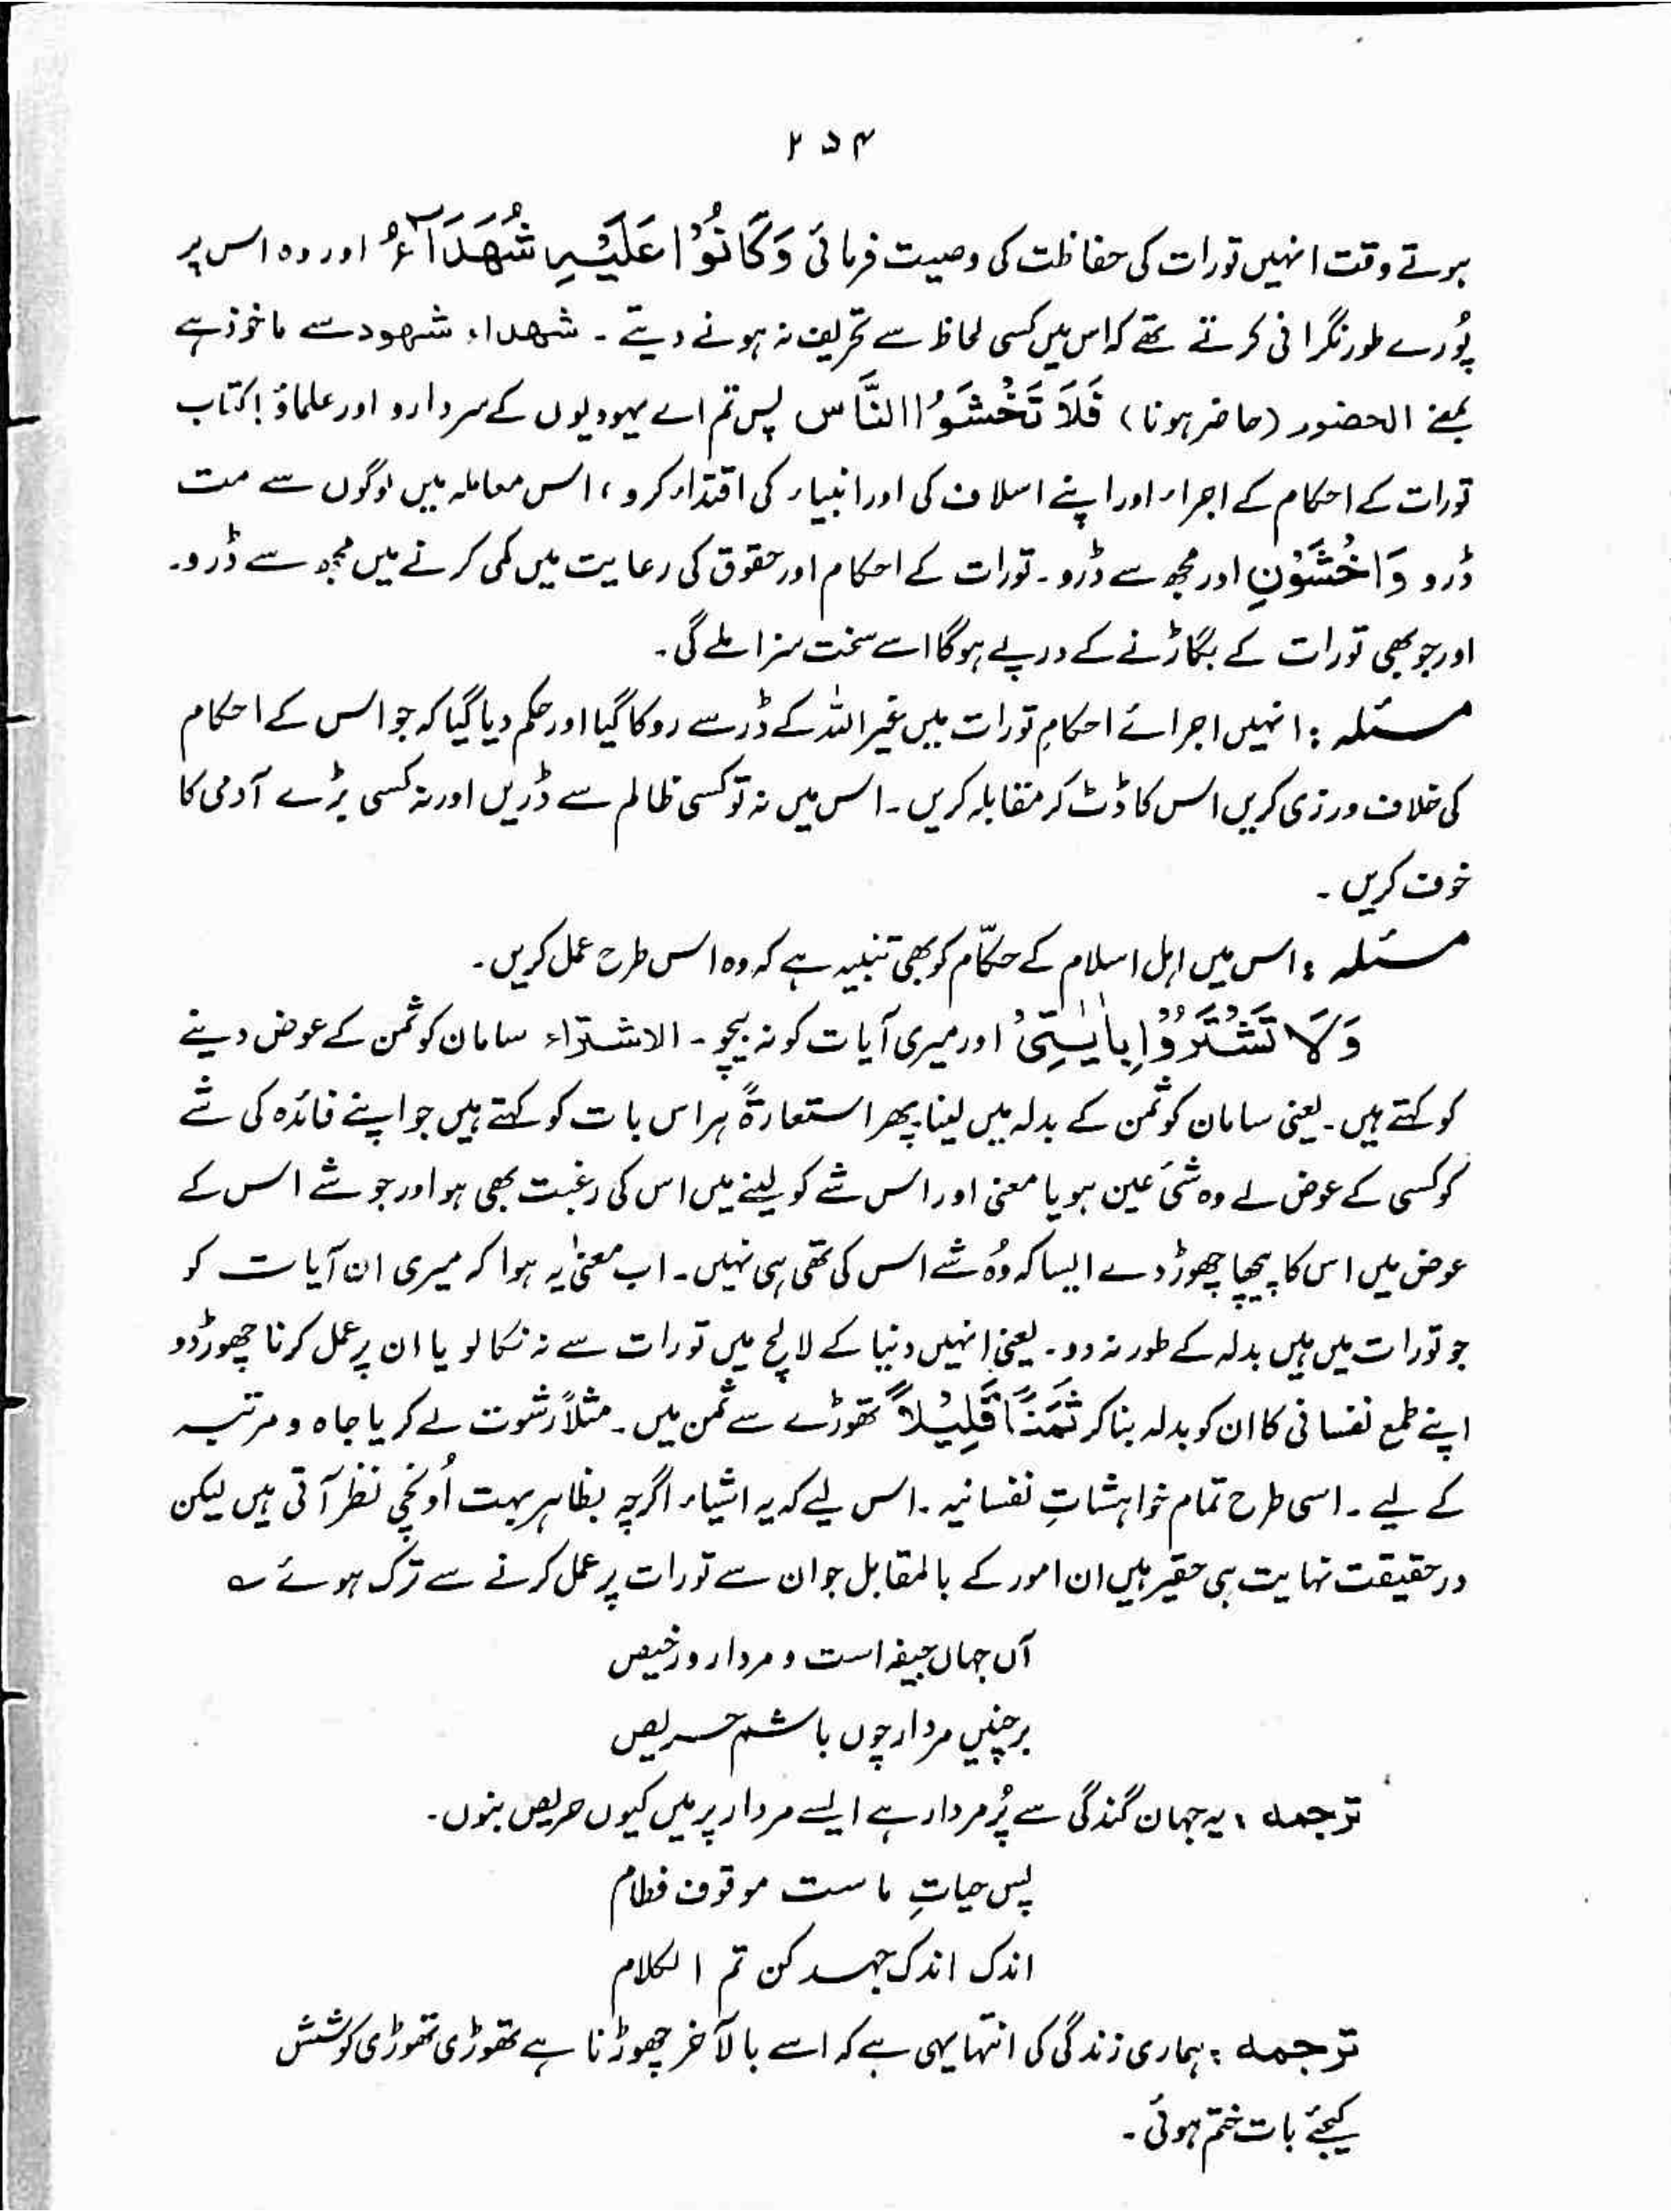 ۲۵۴
ہوتے وقت انہیں تورات کی حفاظت کی وصیت فرمائی وَكَانُوْا عَلَيْهِ شُهَدَآءُ اور وہ اس پر
پُورے طور نگرانی کرتے تھے کہ اس میں کسی لحاظ سے تحریف نہ ہونے دیتے ۔ شھداء شھود سے ماخوذ ہے
بمعنے الحضور (حاضر ہونا) فَلَا تَخْشَوُا النَّاس پس تم اے یہودیوں کے سردارو اور علماؤ! کتاب
تورات کے احکام کے اجراء اور اپنے اسلاف کی اور انبیاء کی اقتداء کرو ، اس معاملہ میں لوگوں سے مت
ڈرو وَاخْشَوْنِ اور مجھ سے ڈرو ۔ تورات کے احکام اور حقوق کی رعایت میں کمی کرنے میں مجھ سے ڈرو۔
اور جو بھی تورات کے بگاڑنے کے درپے ہوگا اسے سخت سزا ملے گی ۔
مسئلہ : انہیں اجرائے احکامِ تورات میں غیر اللہ کے ڈر سے روکا گیا اور حکم دیا گیا کہ جو اس کے احکام
کی خلاف ورزی کریں اس کا ڈٹ کر مقابلہ کریں ۔ اس میں نہ تو کسی ظالم سے ڈریں اور نہ کسی بڑے آدمی کا
خوف کریں ۔
مسئلہ : اس میں اہلِ اسلام کے حکّام کو بھی تنبیہ ہے کہ وہ اس طرح عمل کریں ۔
وَلَا تَشْتَرُوْا بِاٰيٰتِیْ اور میری آیات کو نہ بیچو ۔ الاشتراء سامان کو ثمن کے عوض دینے
کو کہتے ہیں ۔ یعنی سامان کو ثمن کے بدلہ میں لینا پھر استعارۃً ہر اس بات کو کہتے ہیں جو اپنے فائدہ کی شے
کو کسی کے عوض لے وہ شئ عین ہو یا معنی اور اس شے کو لینے میں اس کی رغبت بھی ہو اور جو شے اس کے
عوض میں اس کا پیچھا چھوڑ دے ایسا کہ وُہ شے اس کی تھی ہی نہیں ۔ اب معنیٰ یہ ہوا کہ میری ان آیات کو
جو تورات میں ہیں بدلہ کے طور نہ دو ۔ یعنی انہیں دنیا کے لالچ میں تورات سے نہ نکالو یا ان پر عمل کرنا چھوڑ دو
اپنے طمع نفسانی کا ان کو بدلہ بنا کر ثَمَنًا قَلِيْلًا تھوڑے سے ثمن میں ۔ مثلاً رشوت لے کر یا جاہ و مرتبہ
کے لیے ۔ اسی طرح تمام خواہشاتِ نفسانیہ ۔ اس لیے کہ یہ اشیاء اگرچہ بظاہر بہت اُونچی نظر آتی ہیں لیکن
درحقیقت نہایت ہی حقیر ہیں ان امور کے بالمقابل جو ان سے تورات پر عمل کرنے سے ترک ہوئے ؎
آں جہاں جیفہ است و مردار و رخیص
بر چنیں مردار چوں باشم حریص
ترجمہ : یہ جہان گندگی سے پُر مردار ہے ایسے مردار پر میں کیوں حریص بنوں ۔
پس حیاتِ ماست موقوف فطام
اندک اندک جہد کن تم الکلام
ترجمہ : ہماری زندگی کی انتہا یہی ہے کہ اسے بالآخر چھوڑنا ہے تھوڑی تھوڑی کوشش
کیجئے بات ختم ہوئی ۔